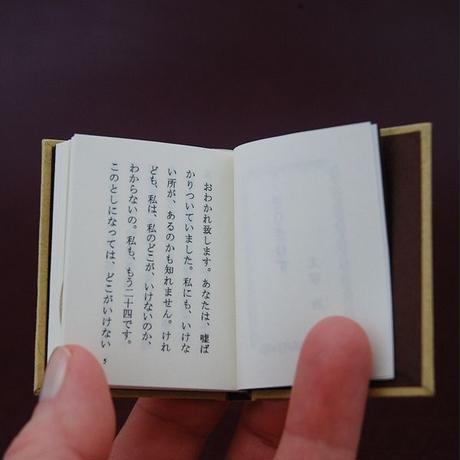 おわかれ致します。あなたは、嘘ば
かりついていました。私にも、いけな
い所が、あるのかも知れません。けれ
ども、私は、私のどこが、いけないのか、
わからないの。私も、もう二十四です。
このとしになっては、どこがいけない
5